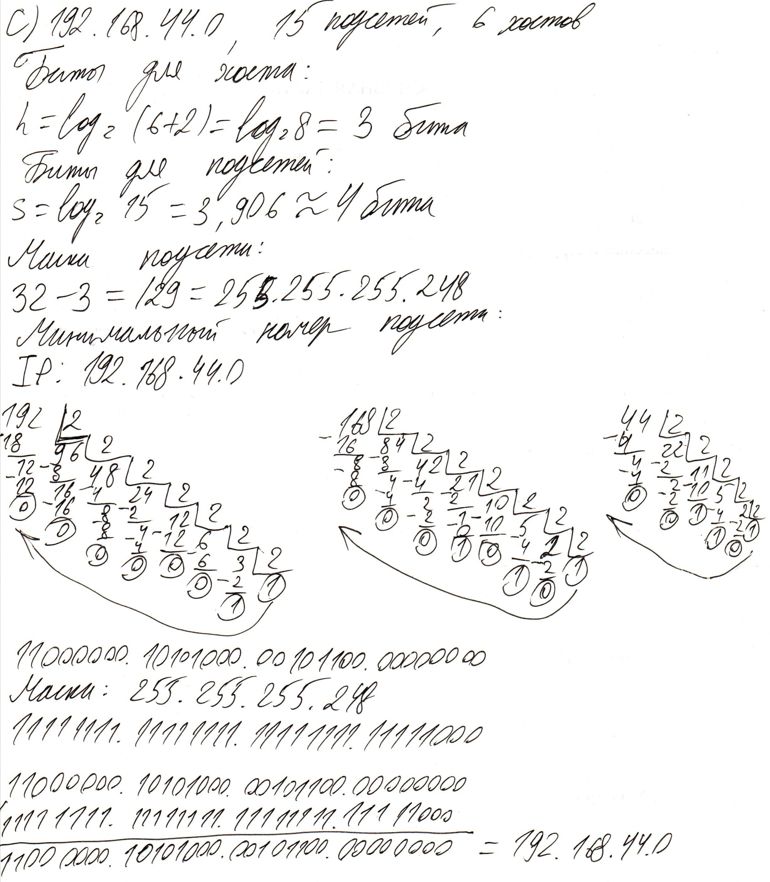 С) 192.168.44.0, 15 подсетей, 6 хостов
Биты для хоста:
h = log₂ (6+2) = log₂ 8 = 3 бита
Биты для подсетей:
S = log₂ 15 = 3,906 ≈ 4 бита
Маска подсети:
32 - 3 = /29 = 255.255.255.248
Минимальный номер подсети:
IP: 192.168.44.0
192 2 168 2 44 2
-18 96 2 -16 84 2 -4 22 2
-12 -8 48 2 8 -8 42 2 4 -2 11 2
12 16 -4 24 2 -8 4 -4 21 2 -4 2 -10 5 2
0 -16 8 -2 12 2 0 -4 2 -2 10 2 0 -2 1 -4 2 2
0 -8 4 -12 6 2 0 -2 1 -10 5 2 0 1 -2 1
0 -4 0 -6 3 2 0 1 0 -4 2 2 0
0 0 -2 1 1 -2 1
1 0
11000000.10101000.00101100.00000000
Маска: 255.255.255.248
11111111.11111111.11111111.11111000
11000000.10101000.00101100.00000000
11111111.11111111.11111111.11111000
11000000.10101000.00101100.00000000 = 192.168.44.0